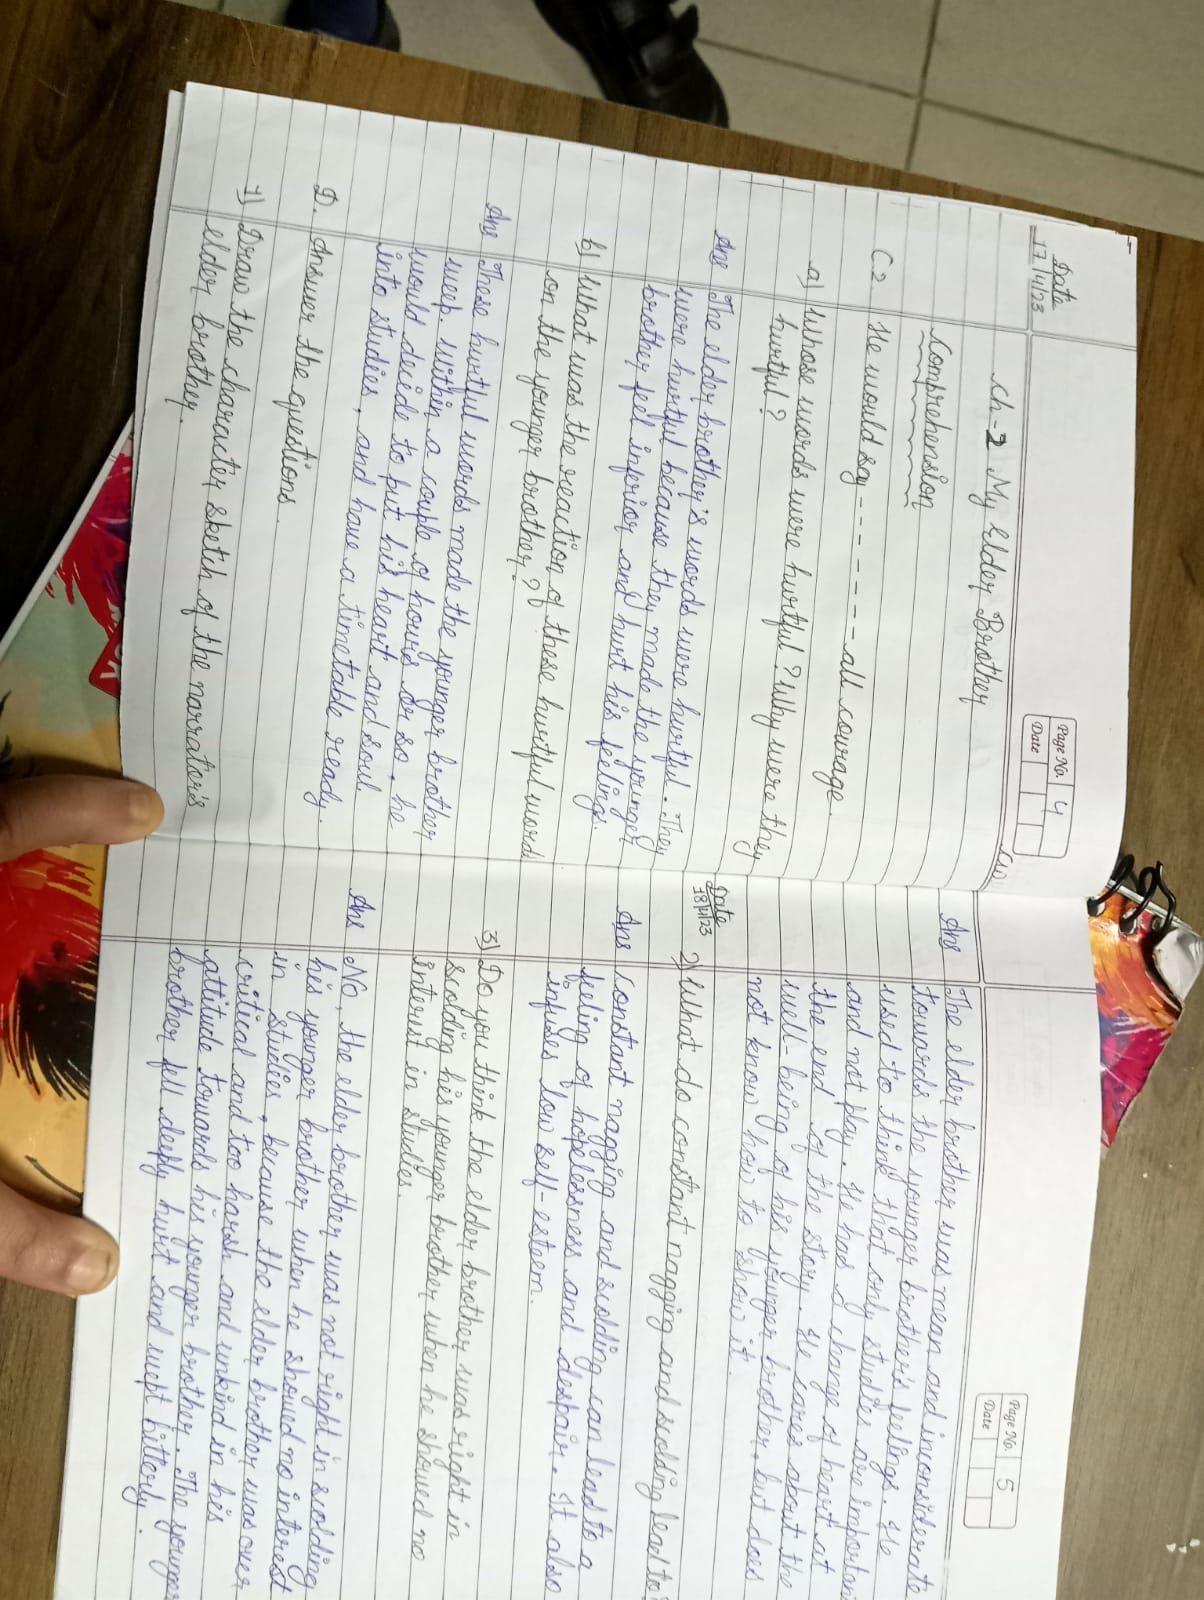 Date
17/4/23
Page No. 4
Date
CW
Ch-2 My Elder Brother
Comprehension
C.2 He would say ------- all courage.
a) Whose words were hurtful? Why were they
hurtful?
Ans The elder brother's words were hurtful. They
were hurtful because they made the younger
brother feel inferior and hurt his feelings.
b) What was the reaction of these hurtful words
on the younger brother?
Ans These hurtful words made the younger brother
weep. Within a couple of hours or so, he
would decide to put his heart and soul
into studies, and have a timetable ready.
D. Answer the questions.
1) Draw the character sketch of the narrator's
elder brother.
Page No. 5
Date
Ans The elder brother was mean and inconsiderate
towards the younger brother's feelings. He
used to think that only studies are important
and not play. He has a change of heart at
the end of the story. He cares about the
well-being of his younger brother, but does
not know how to show it.
Date
18/4/23
2) What do constant nagging and scolding lead to?
Ans Constant nagging and scolding can lead to a
feeling of hopelessness and despair. It also
infuses low self-esteem.
3) Do you think the elder brother was right in
scolding his younger brother when he showed no
interest in studies.
Ans No, the elder brother was not right in scolding
his younger brother when he showed no interest
in studies, because the elder brother was over
critical and too harsh and unkind in his
attitude towards his younger brother. The younger
brother fell deeply hurt and wept bitterly.